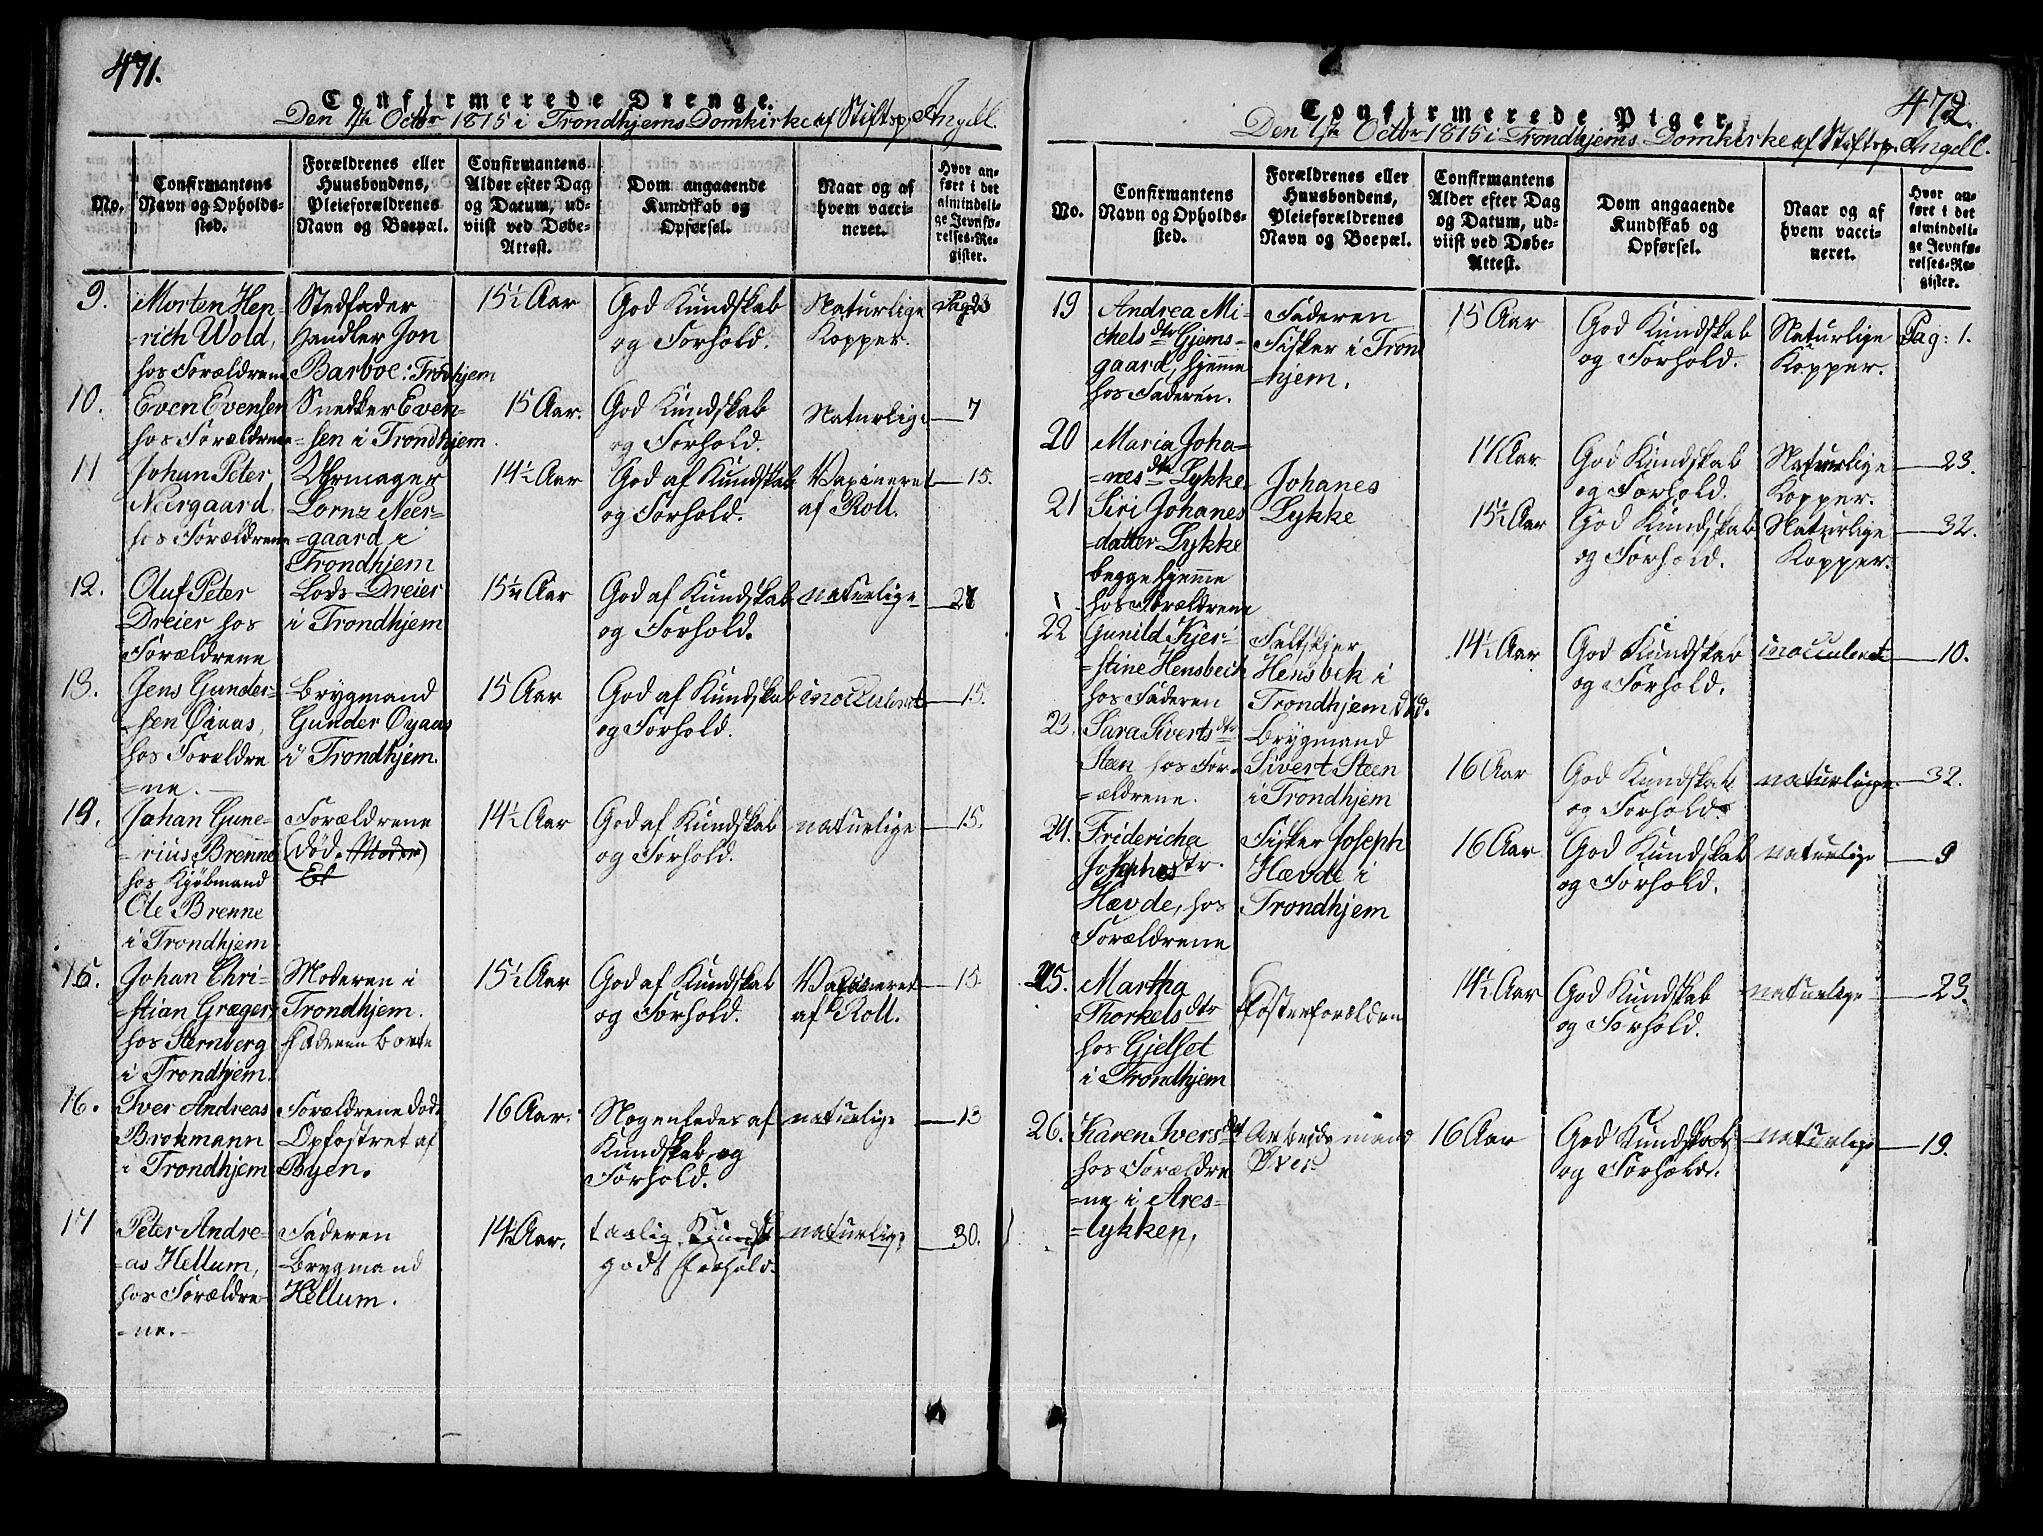 471.
Confirmerede Drenge.
Den 1ste Octbr 1815 i Trondhjems Domkirke af Stiftsp. Angell.
No.
Confirmantens
Navn og Opholds-
sted.
Forældrenes eller
Huusbondens,
Pleieforældrenes
Navn og Boepæl.
Confirmantens
Alder efter Dag
og Datum, ud-
viist ved Døbe-
Attest.
Dom angaaende
Kundskab og
Opførsel.
Naar og af
hvem vacci-
neret.
Hvor an-
ført i det
almindeli-
ge Jevnfø-
relses-Re-
gister.
9.
Morten Hen-
-rich Wold,
hos Forældrene
Stedfader
Handler Jon
Barboe i Trodhjem
15½ Aar
God Kundskab
og Forhold.
Naturlige
Kopper.
Pag:
10.
Even Evensen
hos Forældrene
Snedker Even-
-sen i Trondhjem.
15 Aar.
God Kundskab
og Forhold.
Naturlige
7
11
Johan Peter
Neergaard
hos Forældrene
Uhrmager
Lornz Neer-
=gaard i
Trondhjem
14½ Aar
God af Kundskab
og Forhold.
Vaxineret
af Roll.
15.
12.
Oluf Peter
Dreier hos
Forældrene
Lods Dreier
i Trondhjem
15¼ Aar
God af Kundskab
og Forhold.
naturlige
13.
Jens Gunder-
sen Oiaas,
hos Forældre
=ne.
Brygmand
Gunder Oyaas
i Trondhjem.
15 Aar
God af Kundskab
og Forhold.
inoculeret
15.
14.
Johan Gune-
=rius Brenne
hos Kjøbmand
Ole Brenne
i Trondhjem
Forældrene
(død. Moder)
14½ Aar
God af Kundskab
og Forhold.
naturlige
15.
15.
Johan Chri-
-stian Græger,
hos Sternberg
i Trondhjem.
Moderen i
Trondhjem.
Faderen borte
15½ Aar
God af Kundskab
og Forhold.
Vaxineret
af Roll.
15.
16.
Iver Andreas
Brokmann
i Trondhjem
Forældrene døde
Opfostret af
Byen.
16 Aar.
Nogenledes af
Kundskab og
Forhold.
naturlige
13
17
Peter Andre-
=as Hellum,
hos Forældre-
=ne.
Faderen
Brygmand
Hellum.
14½ Aar.
taalig Kundsk
godt Forhold.
naturlige
30.
472.
Confirmerede Piger.
Den 1ste Octbr 1815 i Trondhjems Domkirke af Stiftsp. Angell.
No.
Confirmantens
Navn og Opholds-
sted.
Forældrenes eller
Huusbondens,
Pleieforældrenes
Navn og Boepæl.
Confirmantens
Alder efter Dag
og Datum, ud-
viist ved Døbe-
Attest.
Dom angaaende
Kundskab og
Opførsel.
Naar og af
hvem vacci-
neret.
Hvor an-
ført i det
almindeli-
ge Jevnfø-
relses-Re-
gister.
19
Andrea Mi-
chelsdtr Gjems-
gaard, hjemme
hos Faderen.
Faderen
Fisker i Tron
-hjem.
15 Aar
God Kundskab
og Forhold.
Naturlige
Kopper.
Pag: 1.
20
Maria Joha-
=nesdtr Lykke.
Johanes
Lykke
Aar
God Kundskab
og Forhold.
Naturlige
Kopper.
23.
21
Siri Johanes
=datter Lykke
begge hjemme
hos Forældrene
15½ Aar
God Kundskab
og Forhold.
Naturlige
Kopper.
32.
22
Gunild Kjer-
-stine Hensbech
hos Faderen
Feltskjer
Hensbek i
Trondhjem, død.
14½ Aar
God Kundskab
og Forhold.
inoculeret
10.
23.
Sara Sivertsdtr
Steen hos For-
=ældrene.
Brygmand
Sivert Steen
i Trondhjem
16 Aar
God Kundskab
og Forhold.
naturlige
32.
24.
Fridericha
Josephsdtr.
Hævde, hos
Forældrene
Fisker Joseph
Hævde i
Trondhjem
16 Aar
God Kundskab
og Forhold.
naturlige
9
25.
Martha
Thorkelsdtr
hos Gjelset
i Trondhjem
Fosterforældre
14½ Aar
God Kundskab
og Forhold.
naturlige
23.
26.
Karen Iversdt
hos Forældre
=ne i Ares-
=lykken,
Arbeidsmand
Iver
16 Aar
God Kundskab
og Forhold.
naturlige
19.